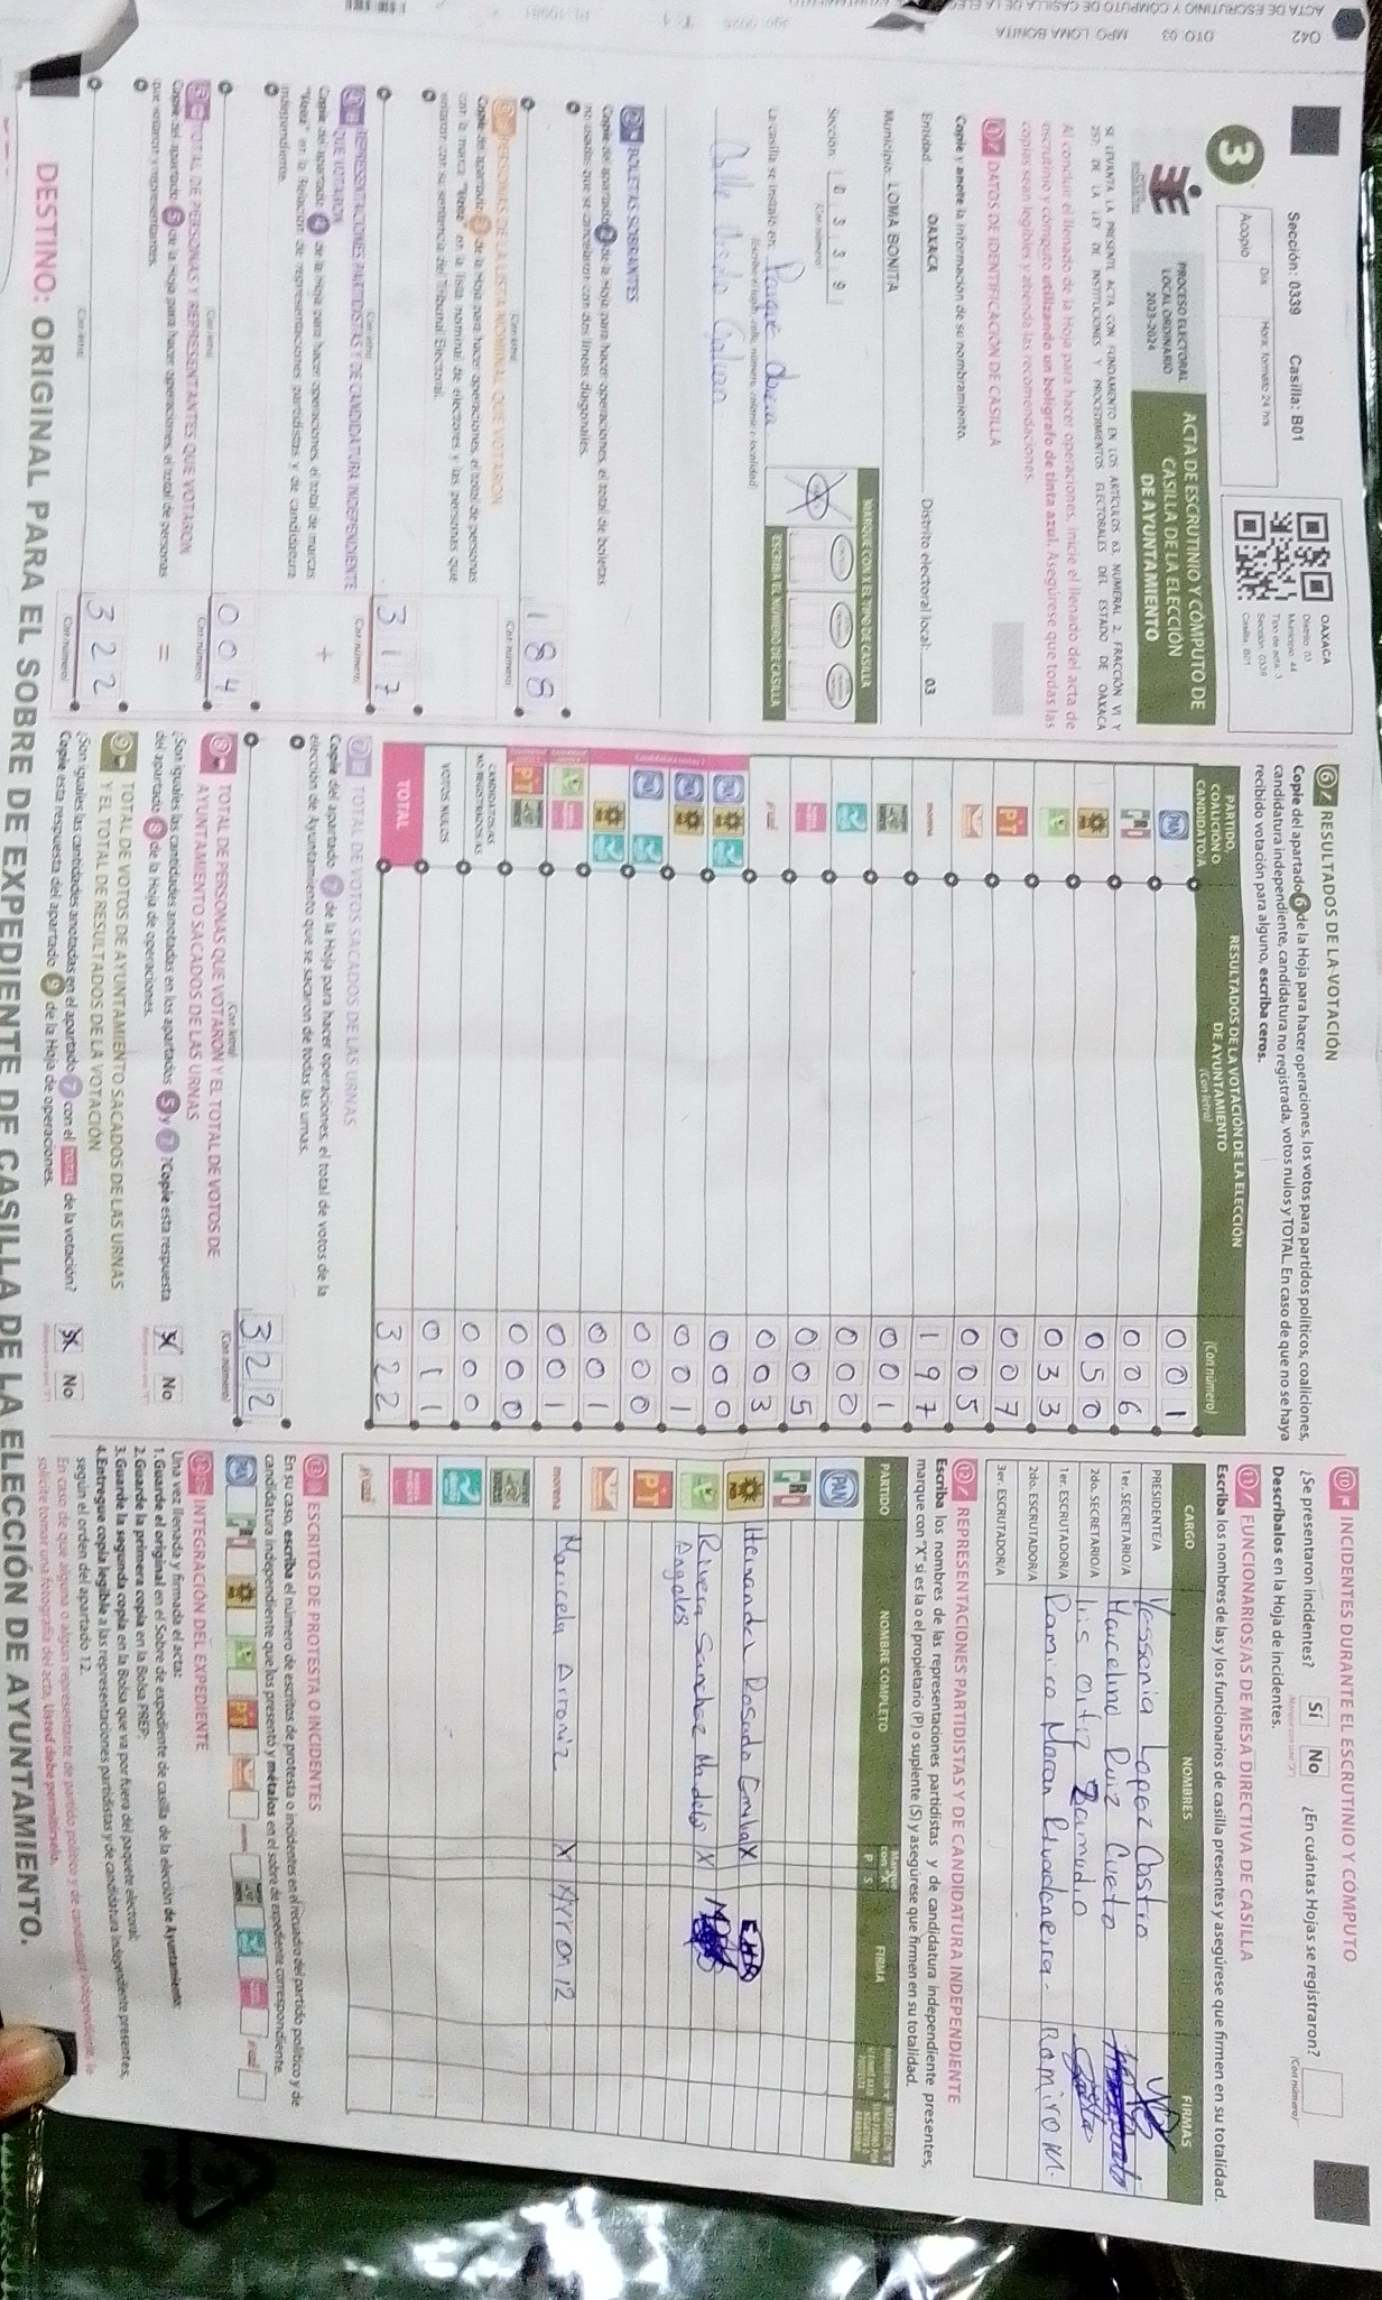 Sección: 0339 Casilla: B01
Día Hora: formato 24 hrs
3 Acopio
OAXACA
Distrito: 03
Municipio: 44
Tipo de acta: 3
Sección: 0339
Casilla: B01
PROCESO ELECTORAL
LOCAL ORDINARIO
2023-2024
ACTA DE ESCRUTINIO Y CÓMPUTO DE
CASILLA DE LA ELECCIÓN
DE AYUNTAMIENTO
SE LEVANTA LA PRESENTE ACTA CON FUNDAMENTO EN LOS ARTÍCULOS 63, NUMERAL 2, FRACCIÓN VI Y
257; DE LA LEY DE INSTITUCIONES Y PROCEDIMIENTOS ELECTORALES DEL ESTADO DE OAXACA
Al concluir el llenado de la Hoja para hacer operaciones, inicie el llenado del acta de
escrutinio y cómputo utilizando un bolígrafo de tinta azul. Asegúrese que todas las
copias sean legibles y atienda las recomendaciones.
1 DATOS DE IDENTIFICACIÓN DE CASILLA
Copie y anote la información de su nombramiento.
Entidad: OAXACA Distrito electoral local: 03
Municipio: LOMA BONITA
Sección: 0 3 3 9
(Con número)
MARQUE CON X EL TIPO DE CASILLA
ESCRIBA EL NÚMERO DE CASILLA
La casilla se instaló en: Parque
(Escriba el lugar, calle, número, colonia o localidad)
2 BOLETAS SOBRANTES
Copie del apartado 2 de la Hoja para hacer operaciones, el total de boletas
no usadas que se cancelaron con dos líneas diagonales.
(Con letra) 1 8 8 (Con número)
3 PERSONAS DE LA LISTA NOMINAL QUE VOTARON
Copie del apartado 3 de la Hoja para hacer operaciones, el total de personas
con la marca "Votó" en la lista nominal de electores y las personas que
votaron con su sentencia del Tribunal Electoral.
(Con letra) 3 1 7 (Con número)
4 REPRESENTACIONES PARTIDISTAS Y DE CANDIDATURA INDEPENDIENTE
QUE VOTARON
Copie del apartado 4 de la Hoja para hacer operaciones, el total de marcas
"Votó" en la Relación de representaciones partidistas y de candidatura
independiente.
+
(Con letra) 0 0 4 (Con número)
5 TOTAL DE PERSONAS Y REPRESENTANTES QUE VOTARON
Copie del apartado 5 de la Hoja para hacer operaciones, el total de personas
que votaron y representantes.
=
(Con letra) 3 2 2 (Con número)
6 RESULTADOS DE LA VOTACIÓN
Copie del apartado 6 de la Hoja para hacer operaciones, los votos para partidos políticos, coaliciones,
candidatura independiente, candidatura no registrada, votos nulos y TOTAL. En caso de que no se haya
recibido votación para alguno, escriba ceros.
PARTIDO, COALICIÓN O CANDIDATO/A
RESULTADOS DE LA VOTACIÓN DE LA ELECCIÓN
DE AYUNTAMIENTO
(Con letra) (Con número)
PAN 0 0 1
PRI 0 0 6
PRD 0 5 0
0 3 3
PT 0 0 7
0 0 5
morena 1 9 7
0 0 1
0 0 0
0 0 5
0 0 3
PAN 0 0 0
PAN 0 0 1
PAN 0 0 0
0 0 1
0 0 1
PT 0 0 0
CANDIDATOS/AS
NO REGISTRADOS/AS 0 0 0
VOTOS NULOS 0 1 1
TOTAL 3 2 2
7 TOTAL DE VOTOS SACADOS DE LAS URNAS
Copie del apartado 7 de la Hoja para hacer operaciones, el total de votos de la
elección de Ayuntamiento que se sacaron de todas las urnas.
(Con letra) 3 2 2 (Con número)
8 TOTAL DE PERSONAS QUE VOTARON Y EL TOTAL DE VOTOS DE
AYUNTAMIENTO SACADOS DE LAS URNAS
¿Son iguales las cantidades anotadas en los apartados 5 y 7 ?Copie esta respuesta
del apartado 8 de la Hoja de operaciones.
Sí No
9 TOTAL DE VOTOS DE AYUNTAMIENTO SACADOS DE LAS URNAS
Y EL TOTAL DE RESULTADOS DE LA VOTACIÓN
¿Son iguales las cantidades anotadas en el apartado 7 con el TOTAL de la votación?
Copie esta respuesta del apartado 9 de la Hoja de operaciones.
Sí No
10 INCIDENTES DURANTE EL ESCRUTINIO Y CÓMPUTO
¿Se presentaron incidentes? Sí No ¿En cuántas Hojas se registraron?
(Con número)
Descríbalos en la Hoja de incidentes.
11 FUNCIONARIOS/AS DE MESA DIRECTIVA DE CASILLA
Escriba los nombres de las y los funcionarios de casilla presentes y asegúrese que firmen en su totalidad.
CARGO NOMBRES FIRMAS
PRESIDENTE/A Yessenia Lopez Castro
1er. SECRETARIO/A Marcelino Ruiz Cueto
2do. SECRETARIO/A Luis Ortiz Zamudio
1er. ESCRUTADOR/A Ramiro Moran Rivadaneira. Ramiro M.
2do. ESCRUTADOR/A
3er. ESCRUTADOR/A
12 REPRESENTACIONES PARTIDISTAS Y DE CANDIDATURA INDEPENDIENTE
Escriba los nombres de las representaciones partidistas y de candidatura independiente presentes,
marque con "X" si es la o el propietario (P) o suplente (S) y asegúrese que firmen en su totalidad.
PARTIDO NOMBRE COMPLETO P S FIRMA
PAN
PRI
PRD Hernandez Rosado X EHR
Rivera Sanchez X
Angeles
PT
morena Maricela Arroniz X
13 ESCRITOS DE PROTESTA O INCIDENTES
En su caso, escriba el número de escritos de protesta o incidentes en el recuadro del partido político y de
candidatura independiente que los presentó y métalos en el sobre de expediente correspondiente.
14 INTEGRACIÓN DEL EXPEDIENTE
Una vez llenada y firmada el acta:
1. Guarde el original en el Sobre de expediente de casilla de la elección de Ayuntamiento;
2. Guarde la primera copia en la Bolsa PREP;
3. Guarde la segunda copia en la Bolsa que va por fuera del paquete electoral;
4. Entregue copia legible a las representaciones partidistas y de candidatura independiente presentes,
según el orden del apartado 12.
En caso de que alguna o algún representante de partido político y de candidatura independiente, le
solicite tomar una fotografía del acta, Usted debe permitírselo.
DESTINO: ORIGINAL PARA EL SOBRE DE EXPEDIENTE DE CASILLA DE LA ELECCIÓN DE AYUNTAMIENTO.
042 DTO 03 MPO LOMA BONITA